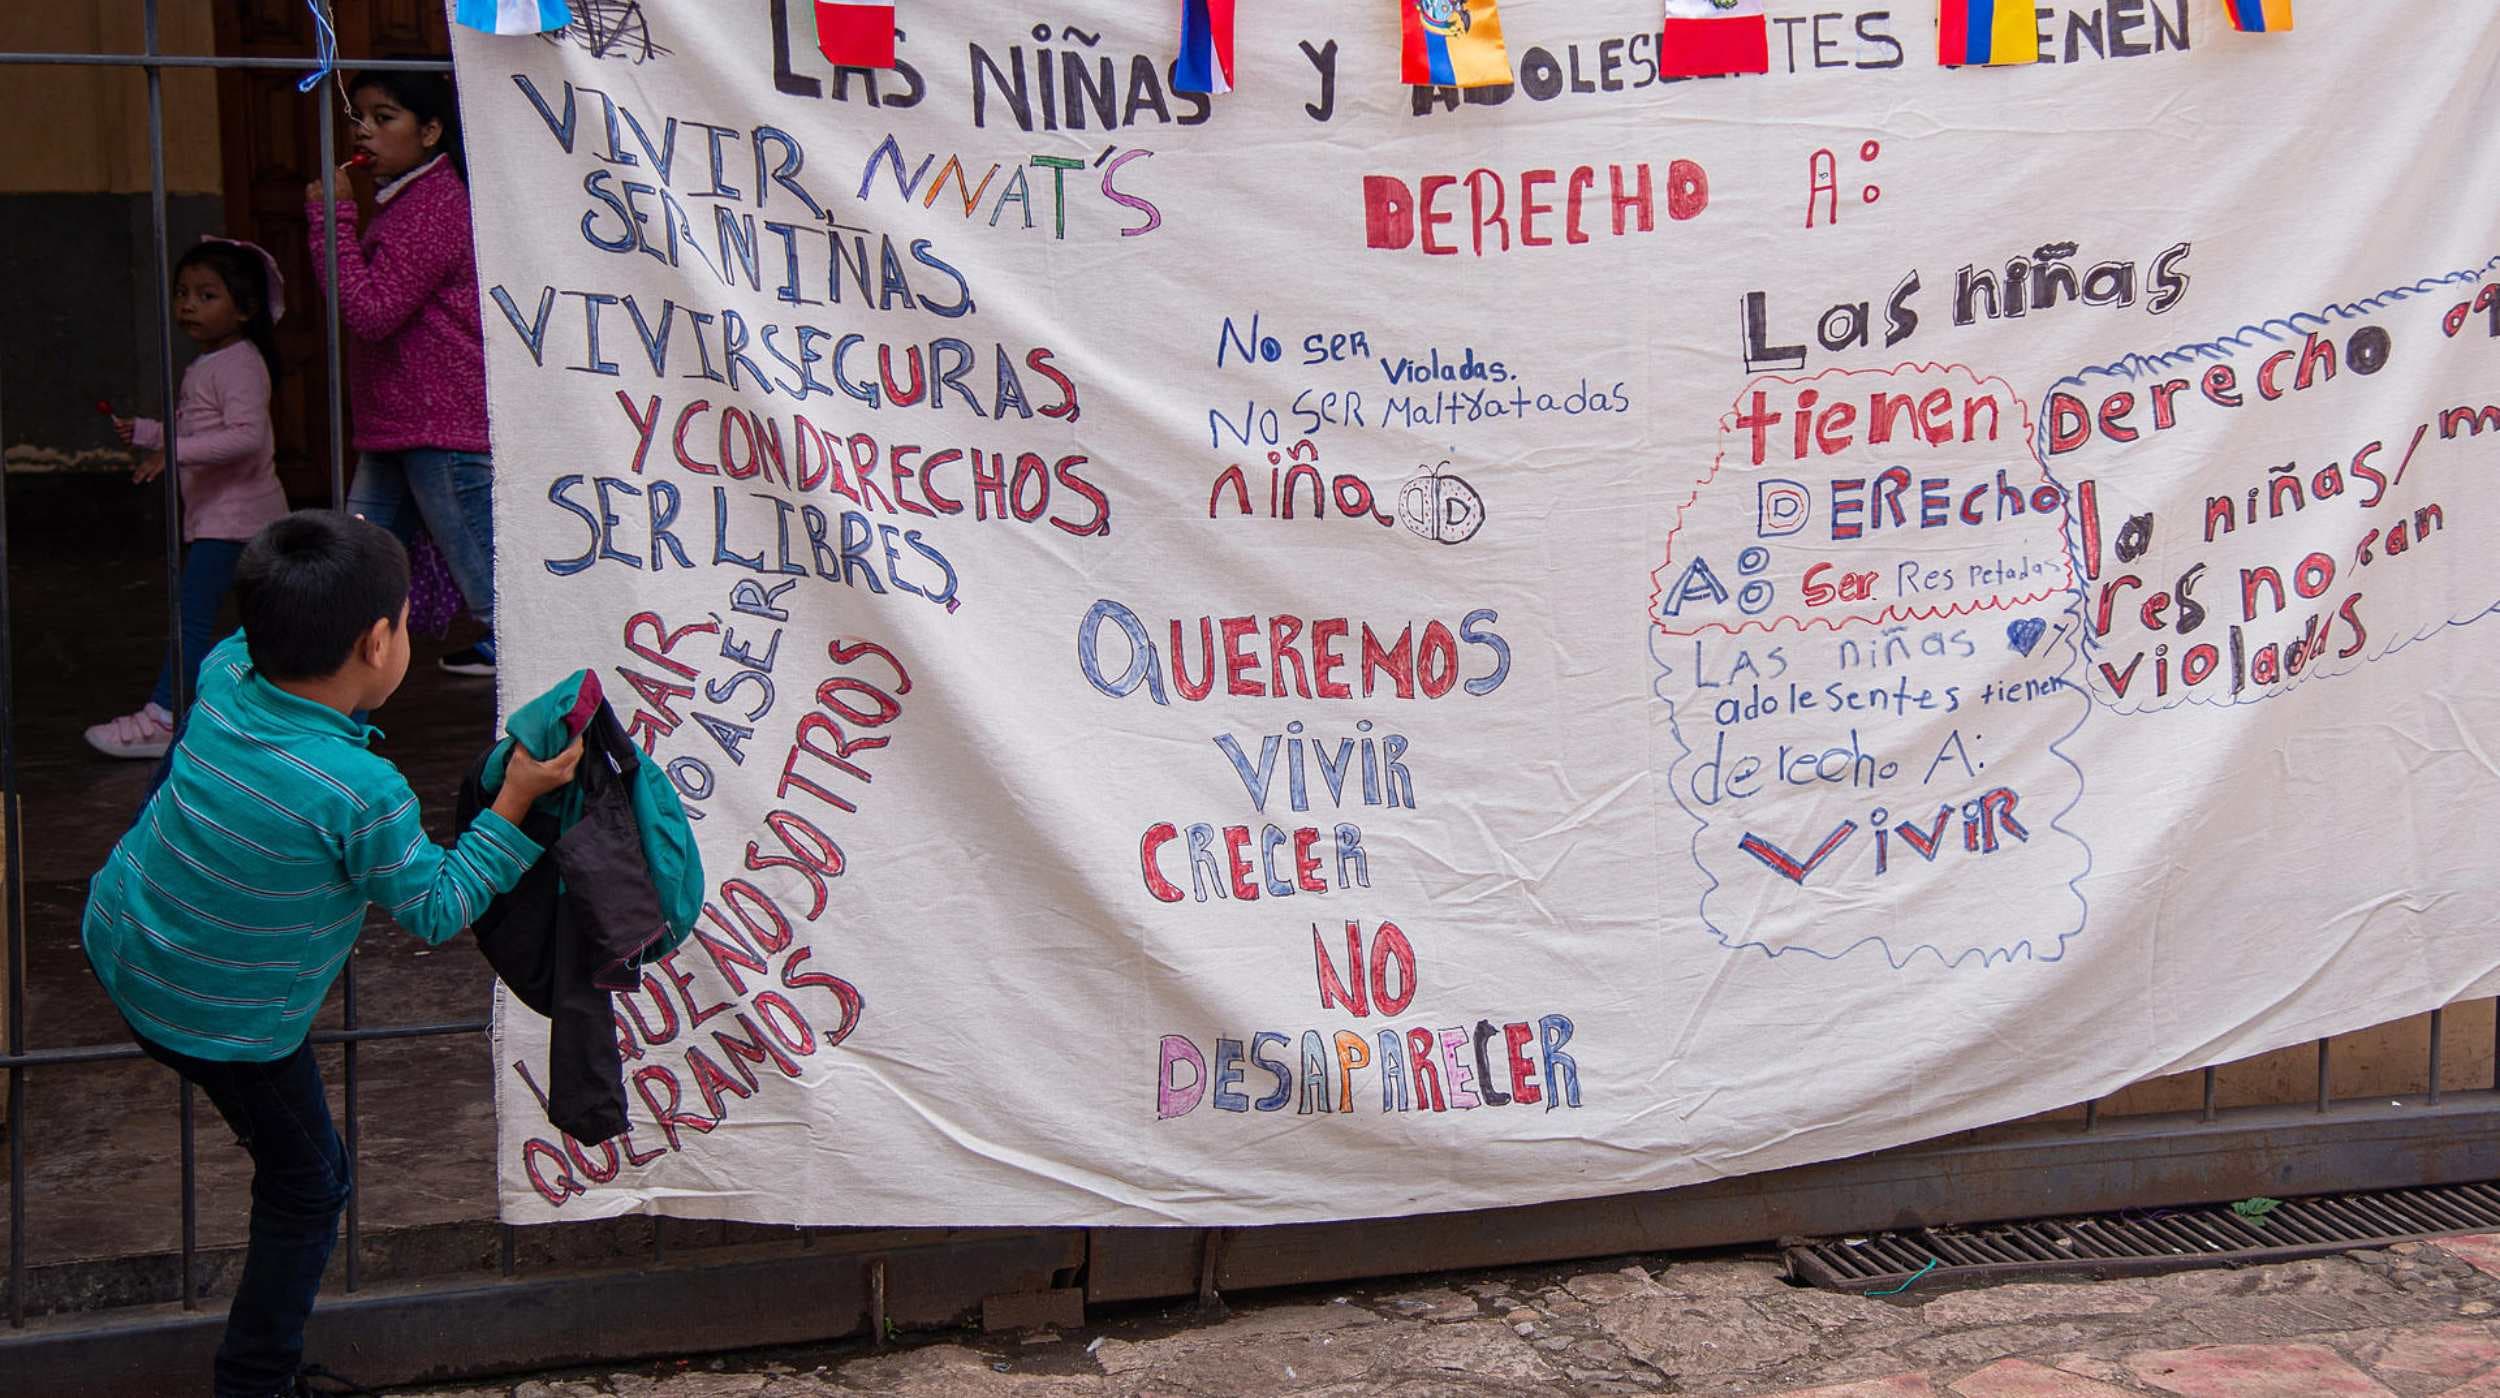 LAS NIÑAS Y ADOLESCENTES TIENEN
DERECHO A:
VIVIR, NNAT'S
SER NIÑAS,
VIVIR SEGURAS,
Y CON DERECHOS,
SER LIBRES,
NO A SER
QUE NOSOTROS
QUERAMOS
No SER
Violadas.
No SER Maltratadas
niña
QUEREMOS
VIVIR
CRECER
NO
DESAPARECER
Las niñas
tienen
DERECho
A: Ser Respetadas
LAS niñas y
adolesentes tienen
derecho A:
VIVIR
Derecho
la niñas/
res no
violadas